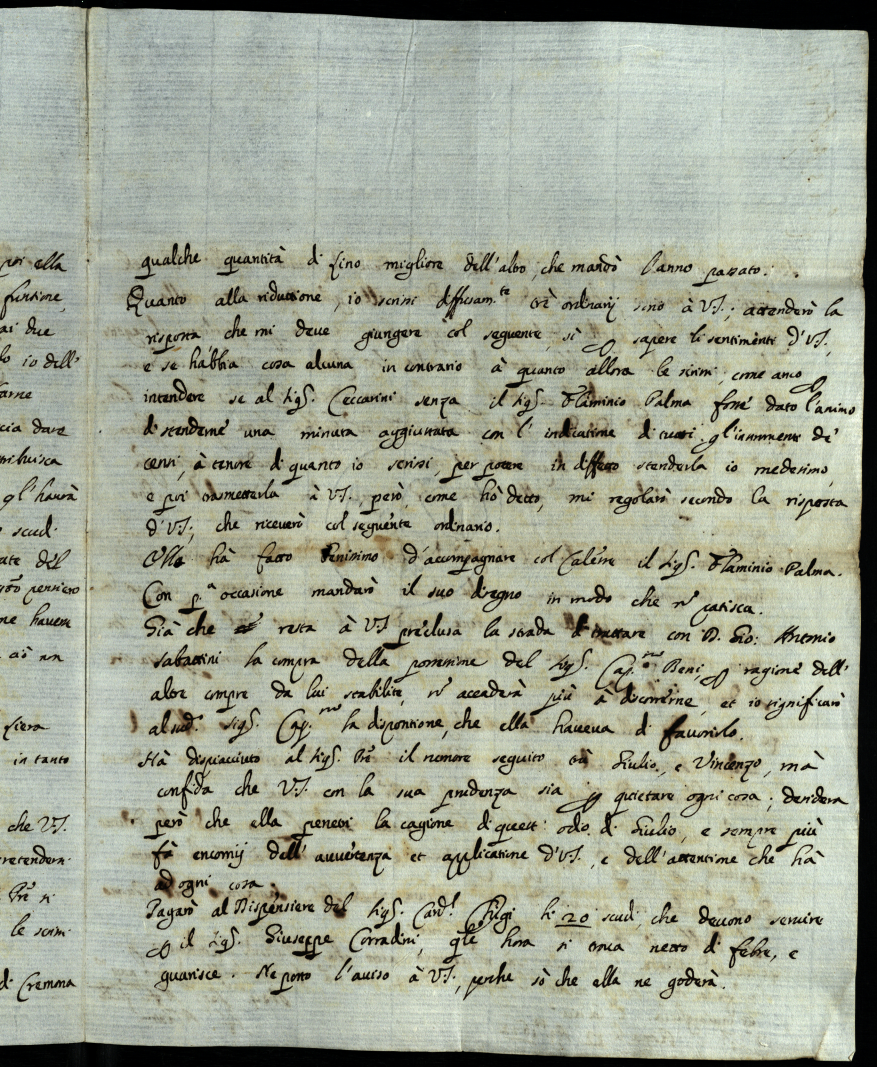 poi ella
funtione,
ai due
lo io dell'
farne
cia dare
ttribuisca
gl'haurà
scudi
ate del
pensiero
ne havere
ciò un
fiera
in tanto
che V.S.
retendern
Pre si
le scrissi
di Cremma
qualche quantità di lino migliore dell'altro, che mandò l'anno passato.
Quanto alla riduttione, io scrissi diffusam.te trè ordinarij sono à V.S.; attenderò la
risposta che mi deve giungere col seguente, sì p sapere li sentimenti d'V.S.,
e se habbia cosa alcuna in contrario à quanto allora le scrissi, come anco p
intendere se al Sig.r Ceccarini senza il Sig.r Flaminio Palma fosse dato l'animo
di stenderne una minuta aggiustata con l'indicatione di tutti gl'istrumenti de'
censi, à tenore di quanto io scrissi, per potere in diffetto stenderla io medesimo,
e poi trasmetterla à V.S. però, come hò detto, mi regolarò secondo la risposta
d'V.S., che riceverò col seguente ordinario.
Ella hà fatto benissimo d'accompagnare col Calesse il Sig.r Flaminio Palma.
Con p.a occasione mandarò il suo disegno in modo che nō patisca.
Già che resta à V.S. preclusa la strada di trattare con D. Gio: Antonio
Sabattini la compra della portione del Sig.r Cap.no Beni, p ragione dell'
altre compre da lui stabilite, nō accaderà più à discorrerne, et io significarò
al sud.o Sig.r Cap.no la dispositione, che ella haveva di favorirlo.
Hà dispiacciuto al Sig.r Pre il rumore seguito trà Giulio, e Vincenzo, mà
confida che V.S. con la sua prudenza sia p quietare ogni cosa; desidera
però che ella penetri la cagione di questi odio di Giulio, e sempre più
fà encomij dell'avvertenza et applicatione d'V.S., e dell'attentione che hà
ad ogni cosa.
Pagarò al Dispensiere del Sig.r Card.l Chigi li 20 scudi, che devono servire
p il Sig.r Giuseppe Corradini, qle hora si trova netto di febre, e
guarisce. Ne porto l'aviso à V.S., perche sò che ella ne goderà.